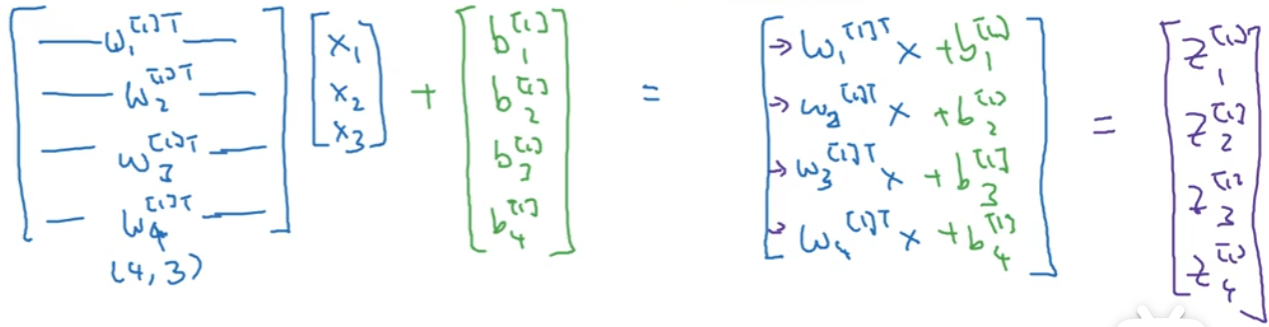 [ — w₁^[1]T — ; — w₂^[1]T — ; — w₃^[1]T — ; — w₄^[1]T — ] [ x₁ ; x₂ ; x₃ ] + [ b₁^[1] ; b₂^[1] ; b₃^[1] ; b₄^[1] ] = [ → w₁^[1]T x + b₁^[1] ; → w₂^[1]T x + b₂^[1] ; → w₃^[1]T x + b₃^[1] ; → w₄^[1]T x + b₄^[1] ] = [ z₁^[1] ; z₂^[1] ; z₃^[1] ; z₄^[1] ]
(4,3)